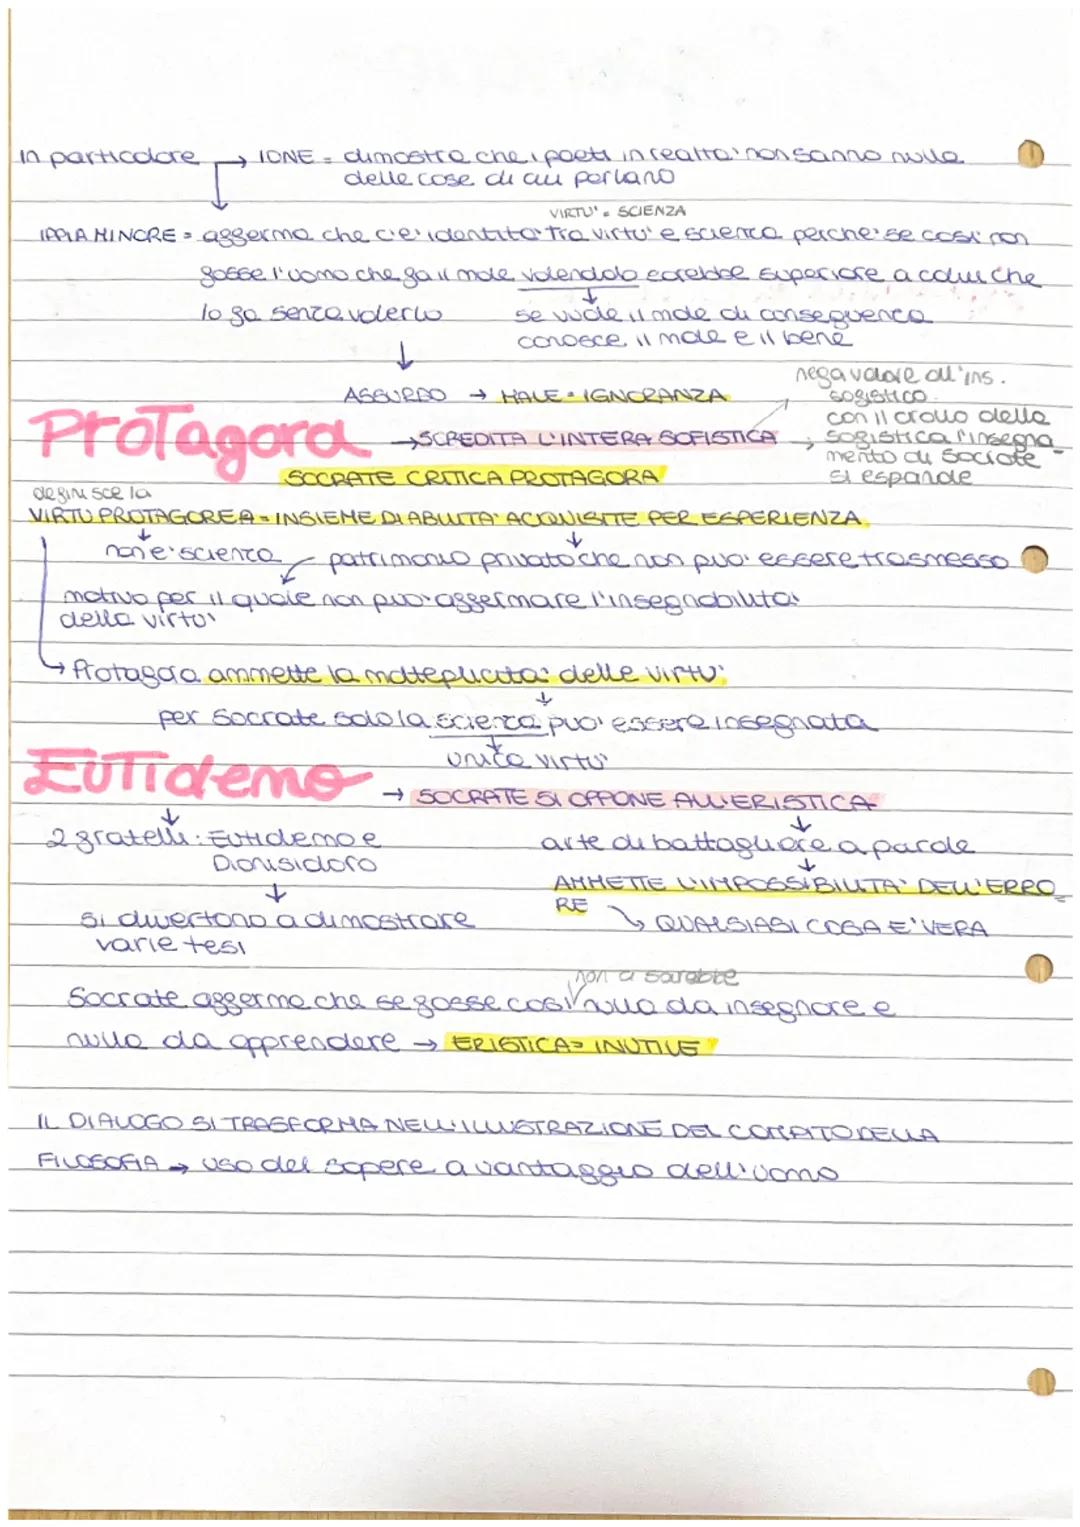 In particolare → IONE = dimostra che i poeti in realtà non sanno nulla
delle cose di cui parlano
VIRTU' = SCIENZA
IPPIA MINORE = afferma che c'è identità tra virtù e scienza perchè se così non
fosse l'uomo che fa il male volendolo sarebbe superiore a colui che
lo fa senza volerlo
se vuole il male di conseguenza
conosce il male e il bene
ASSURDO → MALE = IGNORANZA
nega valore all'ins.
sofistico
con il crollo della
sofistica l'insegna-
mento di Socrate
si espande
Protagora → SCREDITA L'INTERA SOFISTICA
SOCRATE CRITICA PROTAGORA
definisce la
VIRTU PROTAGOREA = INSIEME DI ABILITA' ACQUISITE PER ESPERIENZA
non è scienza
patrimonio privato che non può essere trasmesso
motivo per il quale non può affermare l'insegnabilità
della virtù
→ Protagora ammette la molteplicità delle virtù
per Socrate solo la scienza può essere insegnata
unica virtù
EUTidemo → SOCRATE SI OPPONE ALL'ERISTICA
2 fratelli: Eutidemo e
Dionisidoro
arte di battagliare a parole
AMMETTE L'IMPOSSIBILITA' DELL'ERRO_
RE
QUALSIASI COSA E' VERA
si divertono a dimostrare
varie tesi
non ci sarebbe
Socrate afferma che se fosse così nulla da insegnare e
nulla da apprendere → ERISTICA= INUTILE
IL DIALOGO SI TRASFORMA NELL'ILLUSTRAZIONE DEL COMPITO DELLA
FILOSOFIA → uso del sapere a vantaggio dell'uomo